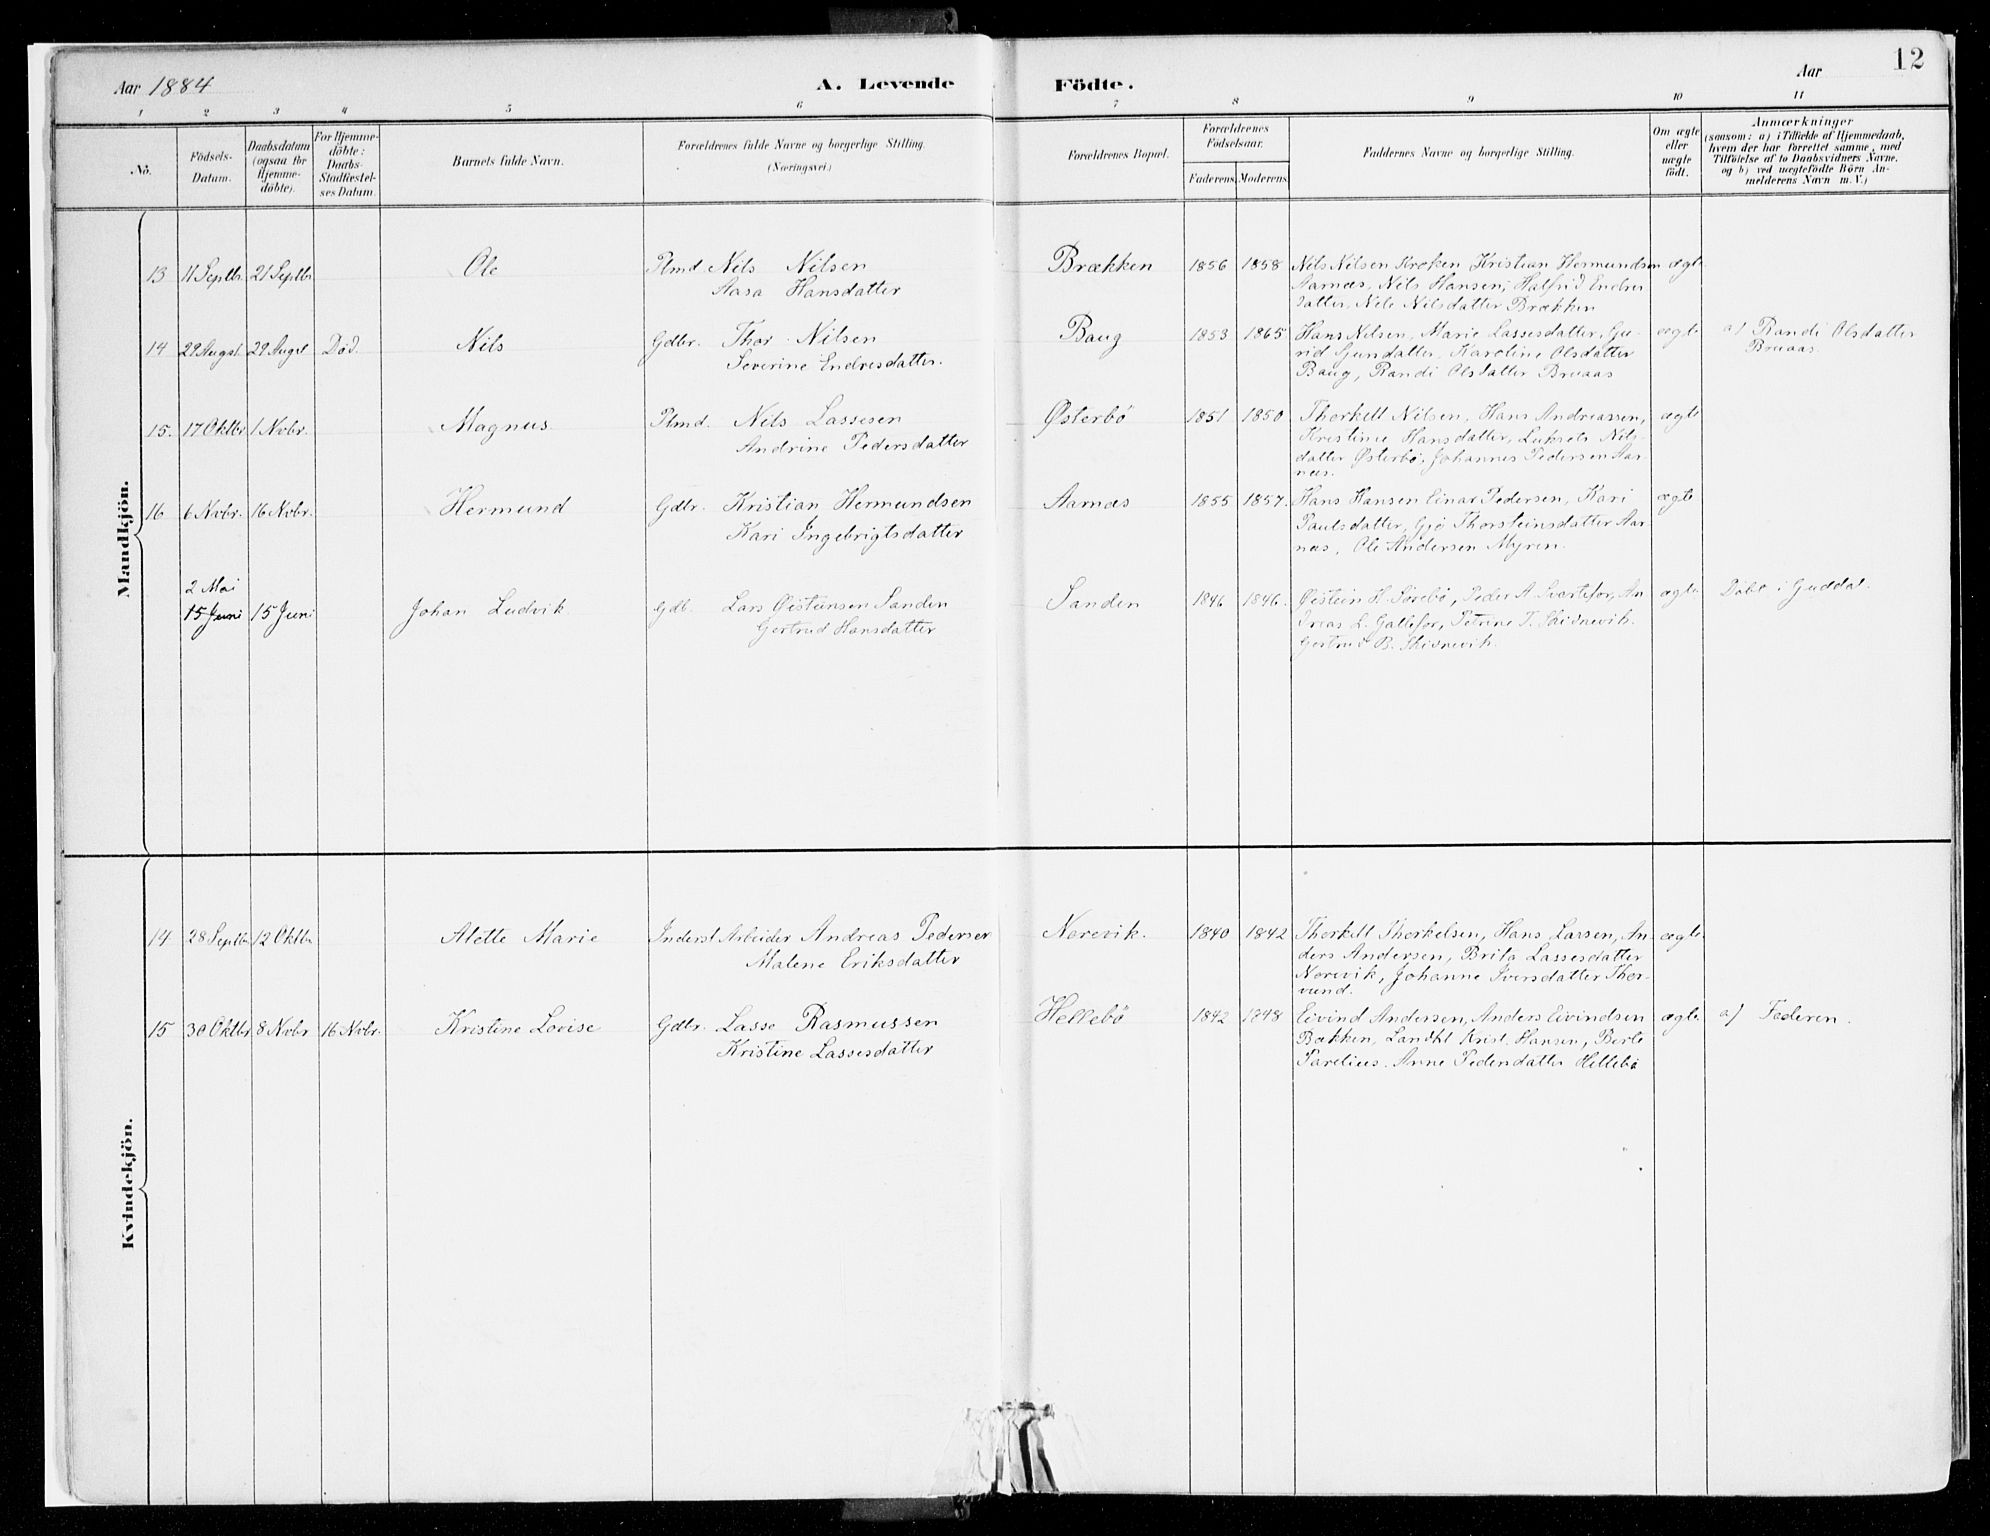 12
Aar 1884
A. Levende Födte.
Aar
1 2 3 4 5 6 7 8 9 10 11
No.
Födsels-
Datum.
Daabsdatum
(ogsaa for
Hjemme-
döbte).
For Hjemme-
döbte:
Daabs-
Stadfæstel-
ses Datum.
Barnets fulde Navn.
Forældrenes fulde Navne og borgerlige Stilling.
(Næringsvei.)
Forældrenes Bopæl.
Forældrenes
Födselsaar.
Faderens. Moderens.
Faddernes Navne og borgerlige Stilling.
Om ægte
eller
uægte
födt.
Anmærkninger
(saasom: a) i Tilfælde af Hjemmedaab,
hvem der har forrettet samme, med
Tilföielse af to Daabsvidners Navne,
og b) ved uægtefödte Börn An-
melderens Navn m. V.)
Mandkjön.
13 11 Septbr. 21 Septbr. Ole Plmd. Nils Nilsen
Aasa Hansdatter
Brækken 1856 1858 ægte
Nils Nilsen Kroken Kristian Hermundsen
Aarnæs, Nils Hansen, Halfrid Endres
datter, Nele Nilsdatter Brækken
14 29 Augst. 29 Augst. Død. Nils Gdbr. Thor Nilsen
Severine Endresdatter.
Baug 1853 1865 ægte
Hans Nilsen, Marie Lassesdatter, Gu-
rid Gundatter, Karoline Olsdatter
Baug, Randi Olsdatter Bruaas
a) Randi Olsdatter
Bruaas.
15. 17 Oktbr. 1 Novbr. Magnus Plmd. Nils Lassesen
Andrine Pedersdatter
Østerbö 1851 1850 ægte
Thorkell Nilsen, Hans Andreassen,
Kristine Hansdatter, Luksels Nils-
datter Østerbö, Johannes Pedersen Aar-
næs.
16 6 Novbr. 16 Novbr. Hermund Gdbr. Kristian Hermundsen
Kari Ingebrigtsdatter
Aarnæs 1855 1857. ægte
Hans Hansen Einar Pedersen, Kari
Paulsdatter, Gjö Thorsteinsdatter Aar
næs, Ole Andersen Myren.
2 Mai
15 Juni 15 Juni Johan Ludvik Gdb. Lars Øistensen Sanden
Gertrud Hansdatter
Sanden 1846 1846. ægte
Øistein H. Sörebö, Peder A. Svartefos, An
dreas L. Gallefos, Petrine T. Skivnevik.
Gertrud B. Skivnevik.
Döbt i Guddal.
Kvindekjön.
14 28 Septbr. 12 Oktbr. Alette Marie Inderst Arbeider Andreas Pedersen
Malene Eriksdatter
Norevik. 1840 1842 ægte.
Thorkell Thorkelsen, Hans Lassen, An
ders Andersen, Brita Lassesdatter
Norevik, Johanne Iversdatter Thor-
vund.
15 30 Oktbr. 8 Novbr. 16 Novbr. Kristine Lovise Gdbr. Lasse Rasmussen
Kristine Lassesdatter
Hellebö 1842 1748 ægte
Eivind Andersen, Anders Eivindsen
Bækken, Landhl. Krist. Hansen, Berle
Parelius. Anne Pedersdatter Hellebö
a) Faderen.